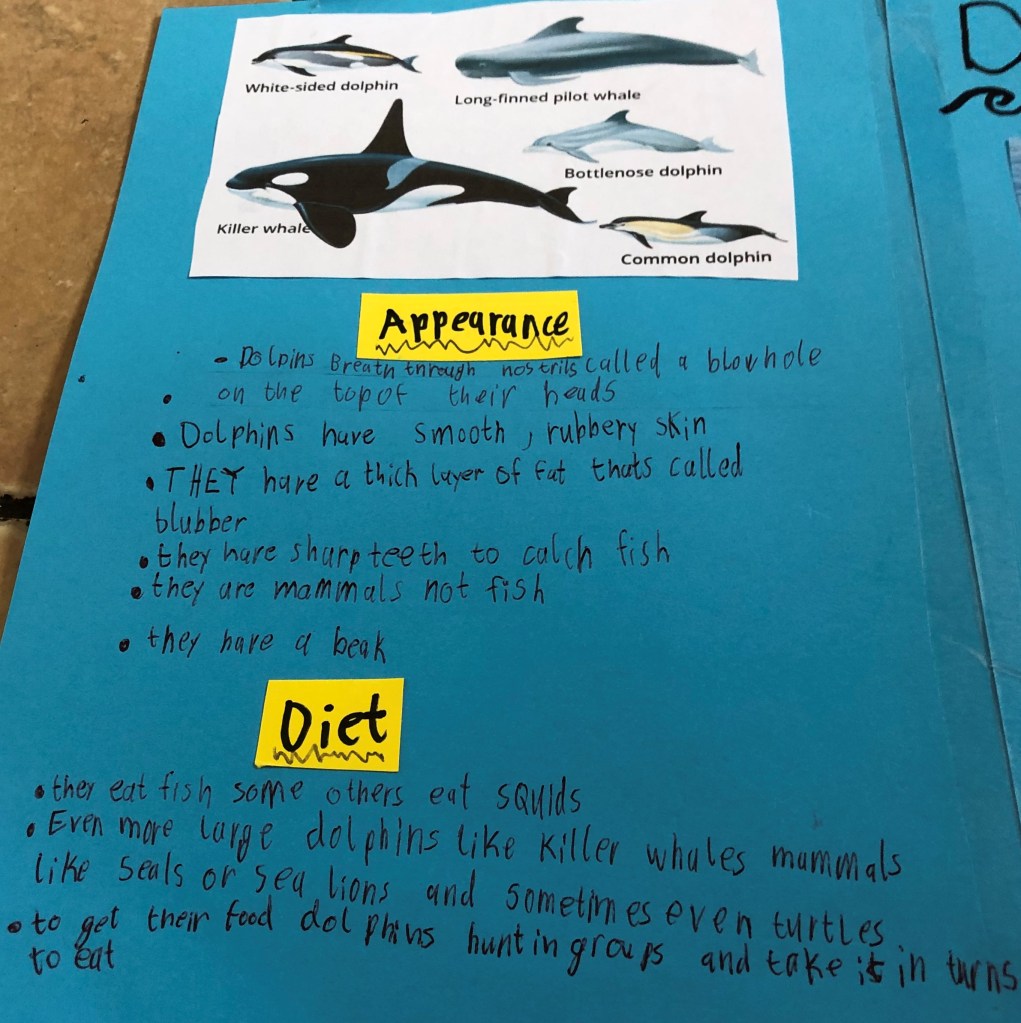 White-sided dolphin
Long-finned pilot whale
Bottlenose dolphin
Killer whale
Common dolphin
D
Appearance
- Dolpins Breath through nostrils called a blowhole
on the top of their heads
• Dolphins have smooth, rubbery skin
• THEY have a thick layer of fat thats called
blubber
• they have sharp teeth to catch fish
• they are mammals not fish
• they have a beak
Diet
• they eat fish some others eat squids
• Even more large dolphins like killer whales mammals
like seals or sea lions and sometimes even turtles
• to get their food dolphins hunt in groups and take it in turns
to eat